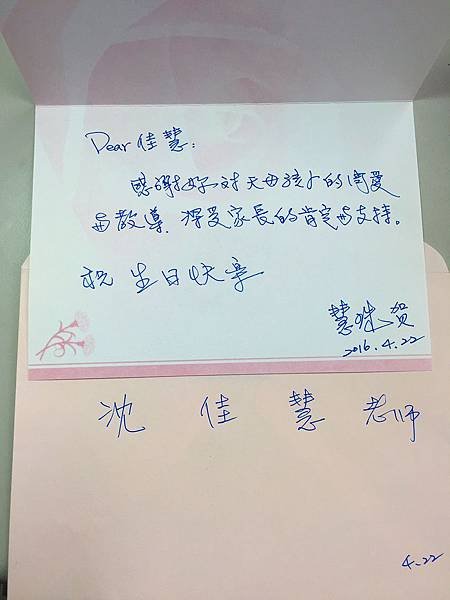 Dear 佳慧:
感謝妳對天母孩子的關愛
與教導,深受家長的肯定與支持。
祝 生日快樂
慧珠 賀
2016.4.22
沈 佳 慧 老师
4.22